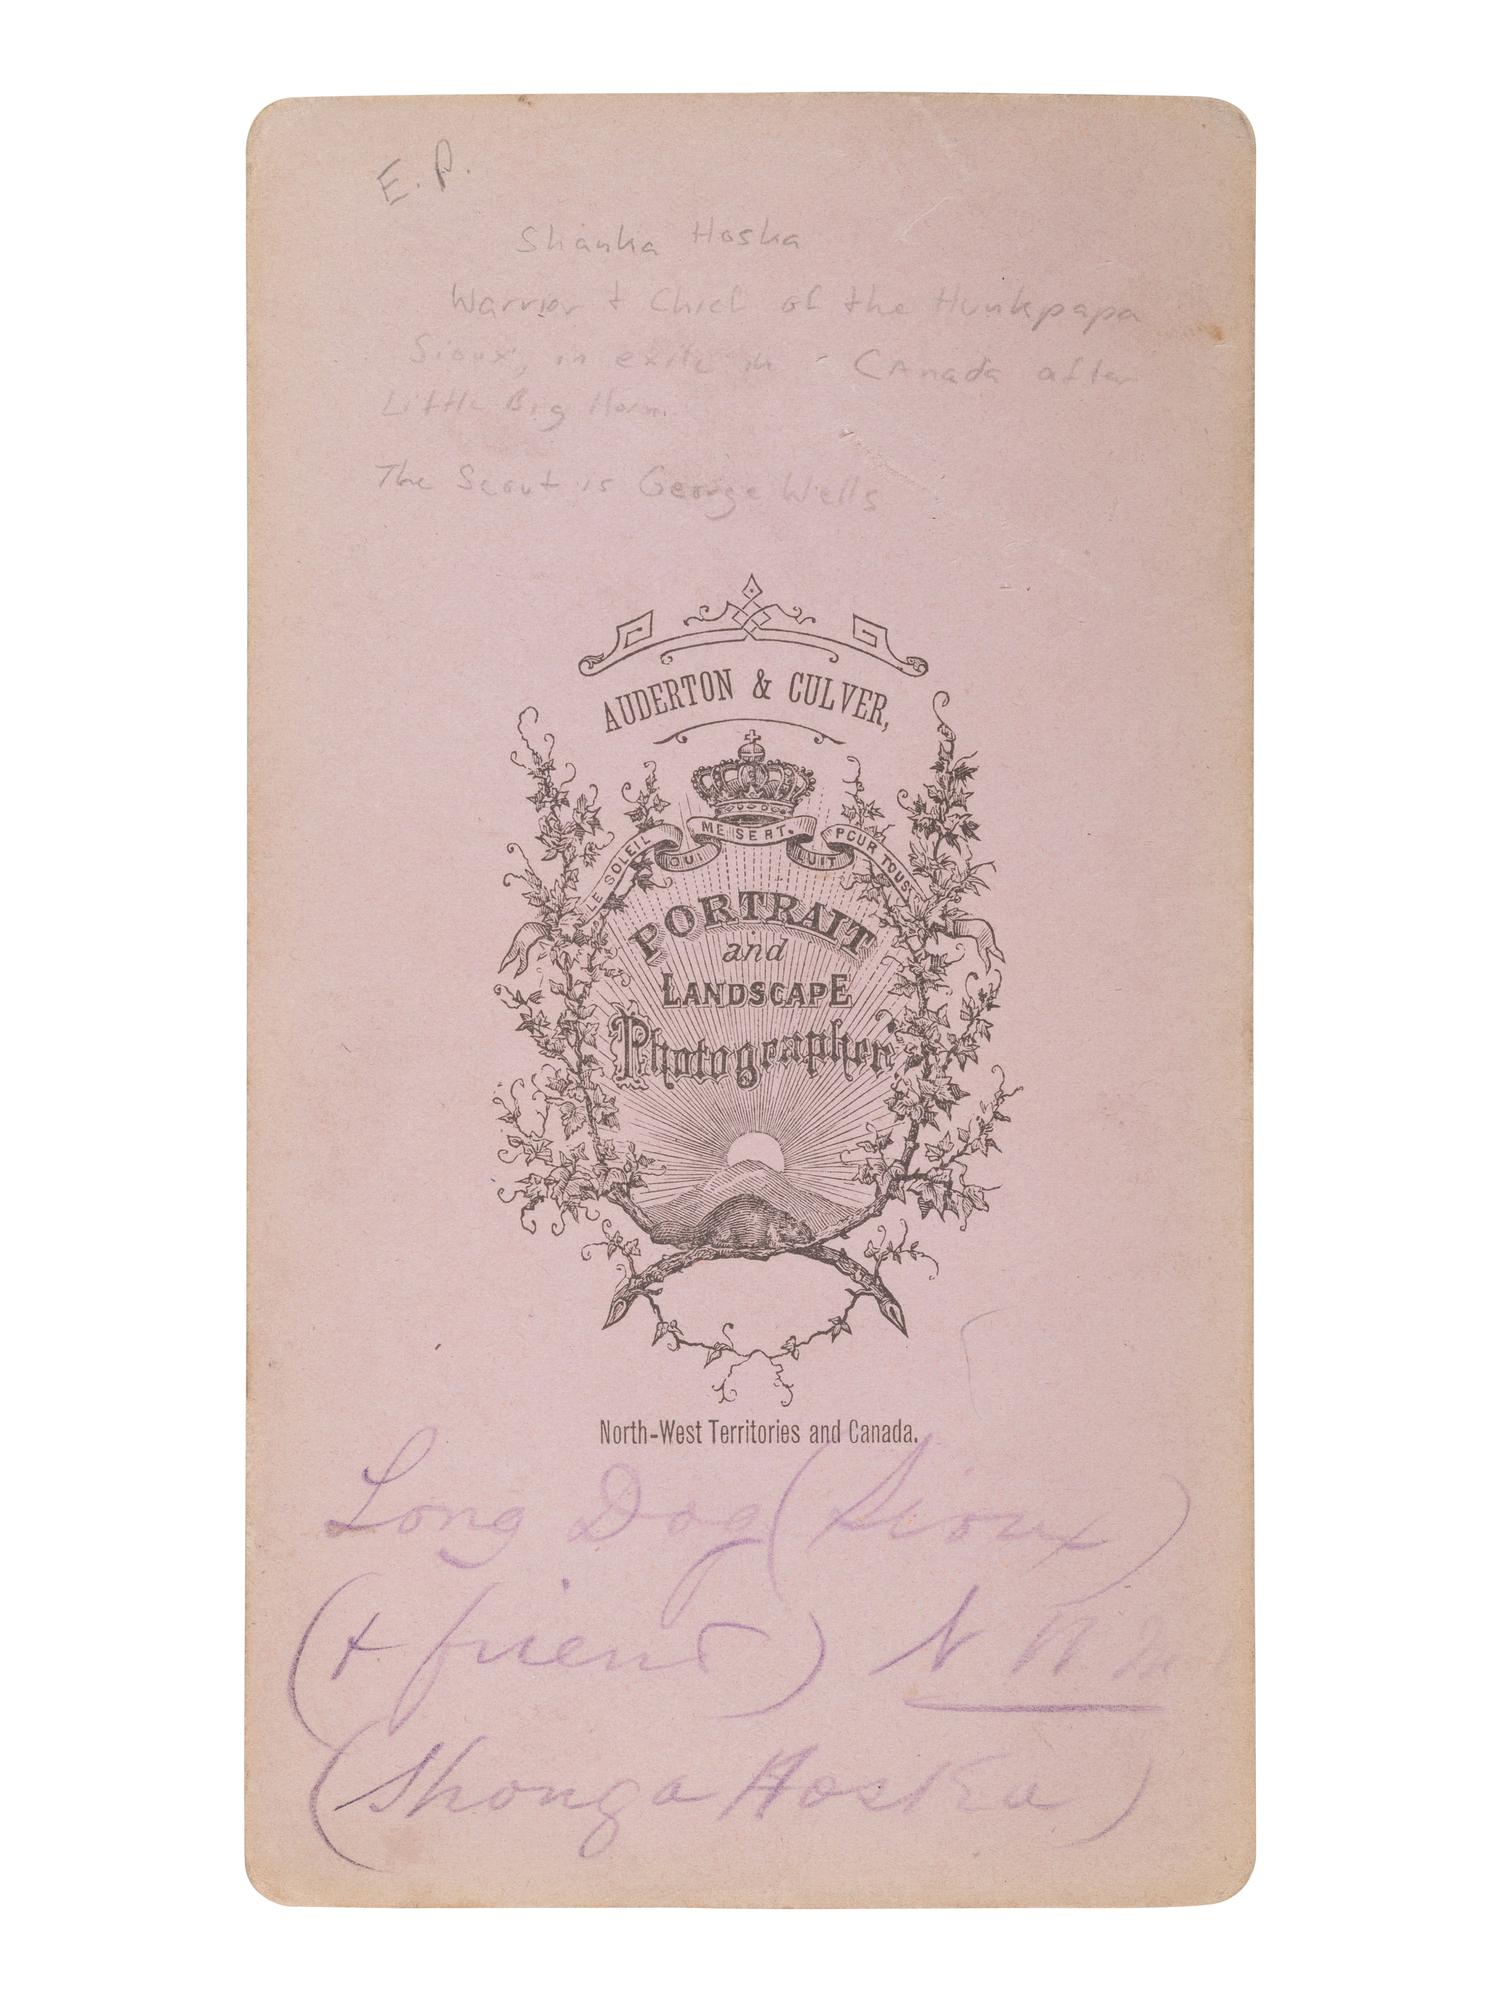 E. P.
Shanka Hoska
Warrior + Chief of the Hunkpapa
Sioux, in exile in Canada after
Little Big Horn.
The Scout is George Wells
AUDERTON & CULVER,
LE SOLEIL QUI ME SERT. LUIT POUR TOUS
PORTRAIT
and
LANDSCAPE
Photographer
North-West Territories and Canada.
Long Dog (Sioux)
(+ friend) N W
(Shonga Hoska)